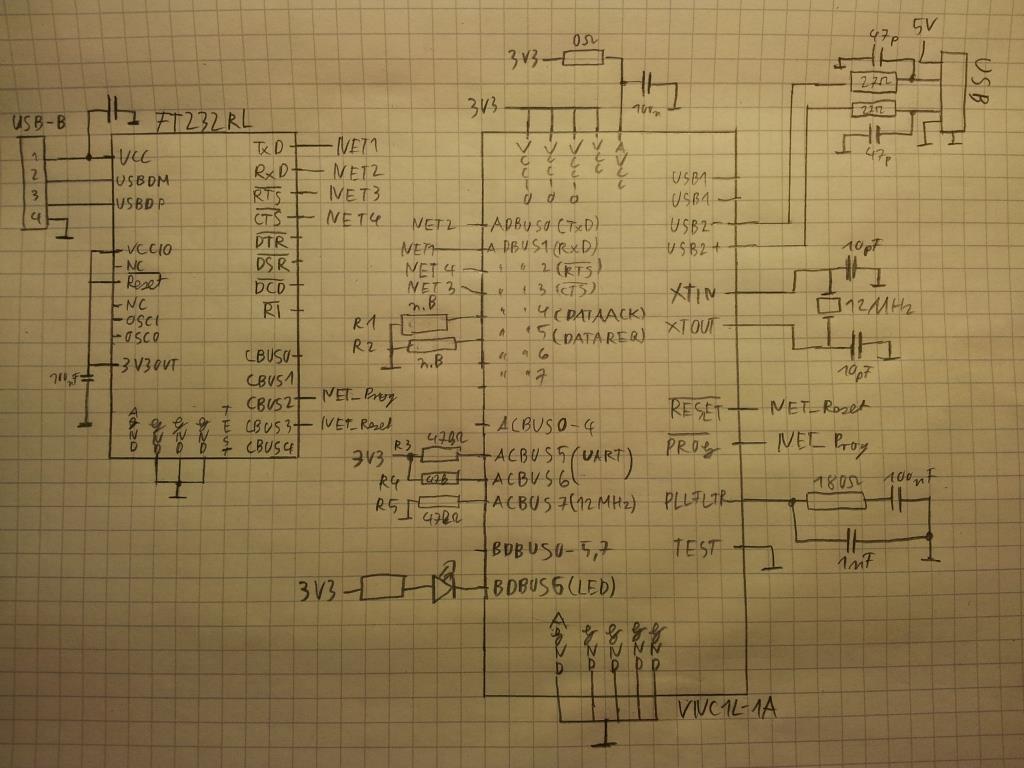 USB-B
FT232RL
1
2
3
4
VCC
USBDM
USBDP
VCCIO
NC
Reset
NC
OSCI
OSCO
3V3OUT
100nF
AGND
GND
GND
GND
TEST
TxD
RxD
RTS
CTS
DTR
DSR
DCD
RI
CBUS0
CBUS1
CBUS2
CBUS3
CBUS4
NET1
NET2
NET3
NET4
NET_Prog
NET_Reset
3V3
0Ω
100n
3V3
VCCIO
VCCIO
VCCIO
VCC
AVCC
NET2
ADBUS0 (TxD)
NET1
ADBUS1 (RxD)
NET4
" " 2 (RTS)
NET3
" " 3 (CTS)
R1
n.B
" " 4 (DATAACK)
R2
n.B
" " 5 (DATAREQ)
" " 6
" " 7
ACBUS0-4
3V3
R3
47kΩ
ACBUS5 (UART)
R4
ACBUS6
R5
47kΩ
ACBUS7 (12MHz)
BDBUS0-5,7
3V3
BDBUS6 (LED)
AGND
GND
GND
GND
GND
USB1-
USB1+
USB2-
USB2+
XTIN
XTOUT
RESET
PROG
PLLFLTR
TEST
VNC1L-1A
47p
5V
USB
27Ω
27Ω
47p
10pF
12MHz
10pF
NET_Reset
NET_Prog
180Ω
100nF
1nF